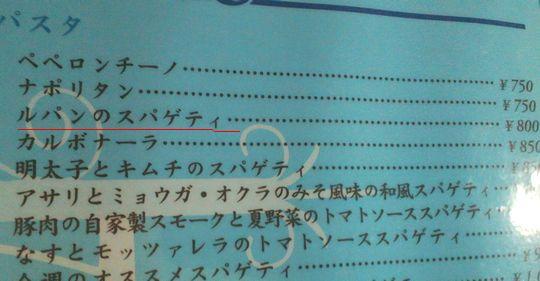 パスタ
ペペロンチーノ……………………………¥750
ナポリタン……………………………¥750
ルパンのスパゲティ……………………………¥800
カルボナーラ……………………………¥850
明太子とキムチのスパゲティ……………………………
アサリとミョウガ・オクラのみそ風味の和風スパゲティ………
豚肉の自家製スモークと夏野菜のトマトソーススパゲティ……
なすとモッツァレラのトマトソーススパゲティ……………
今週のオススメスパゲティ……………